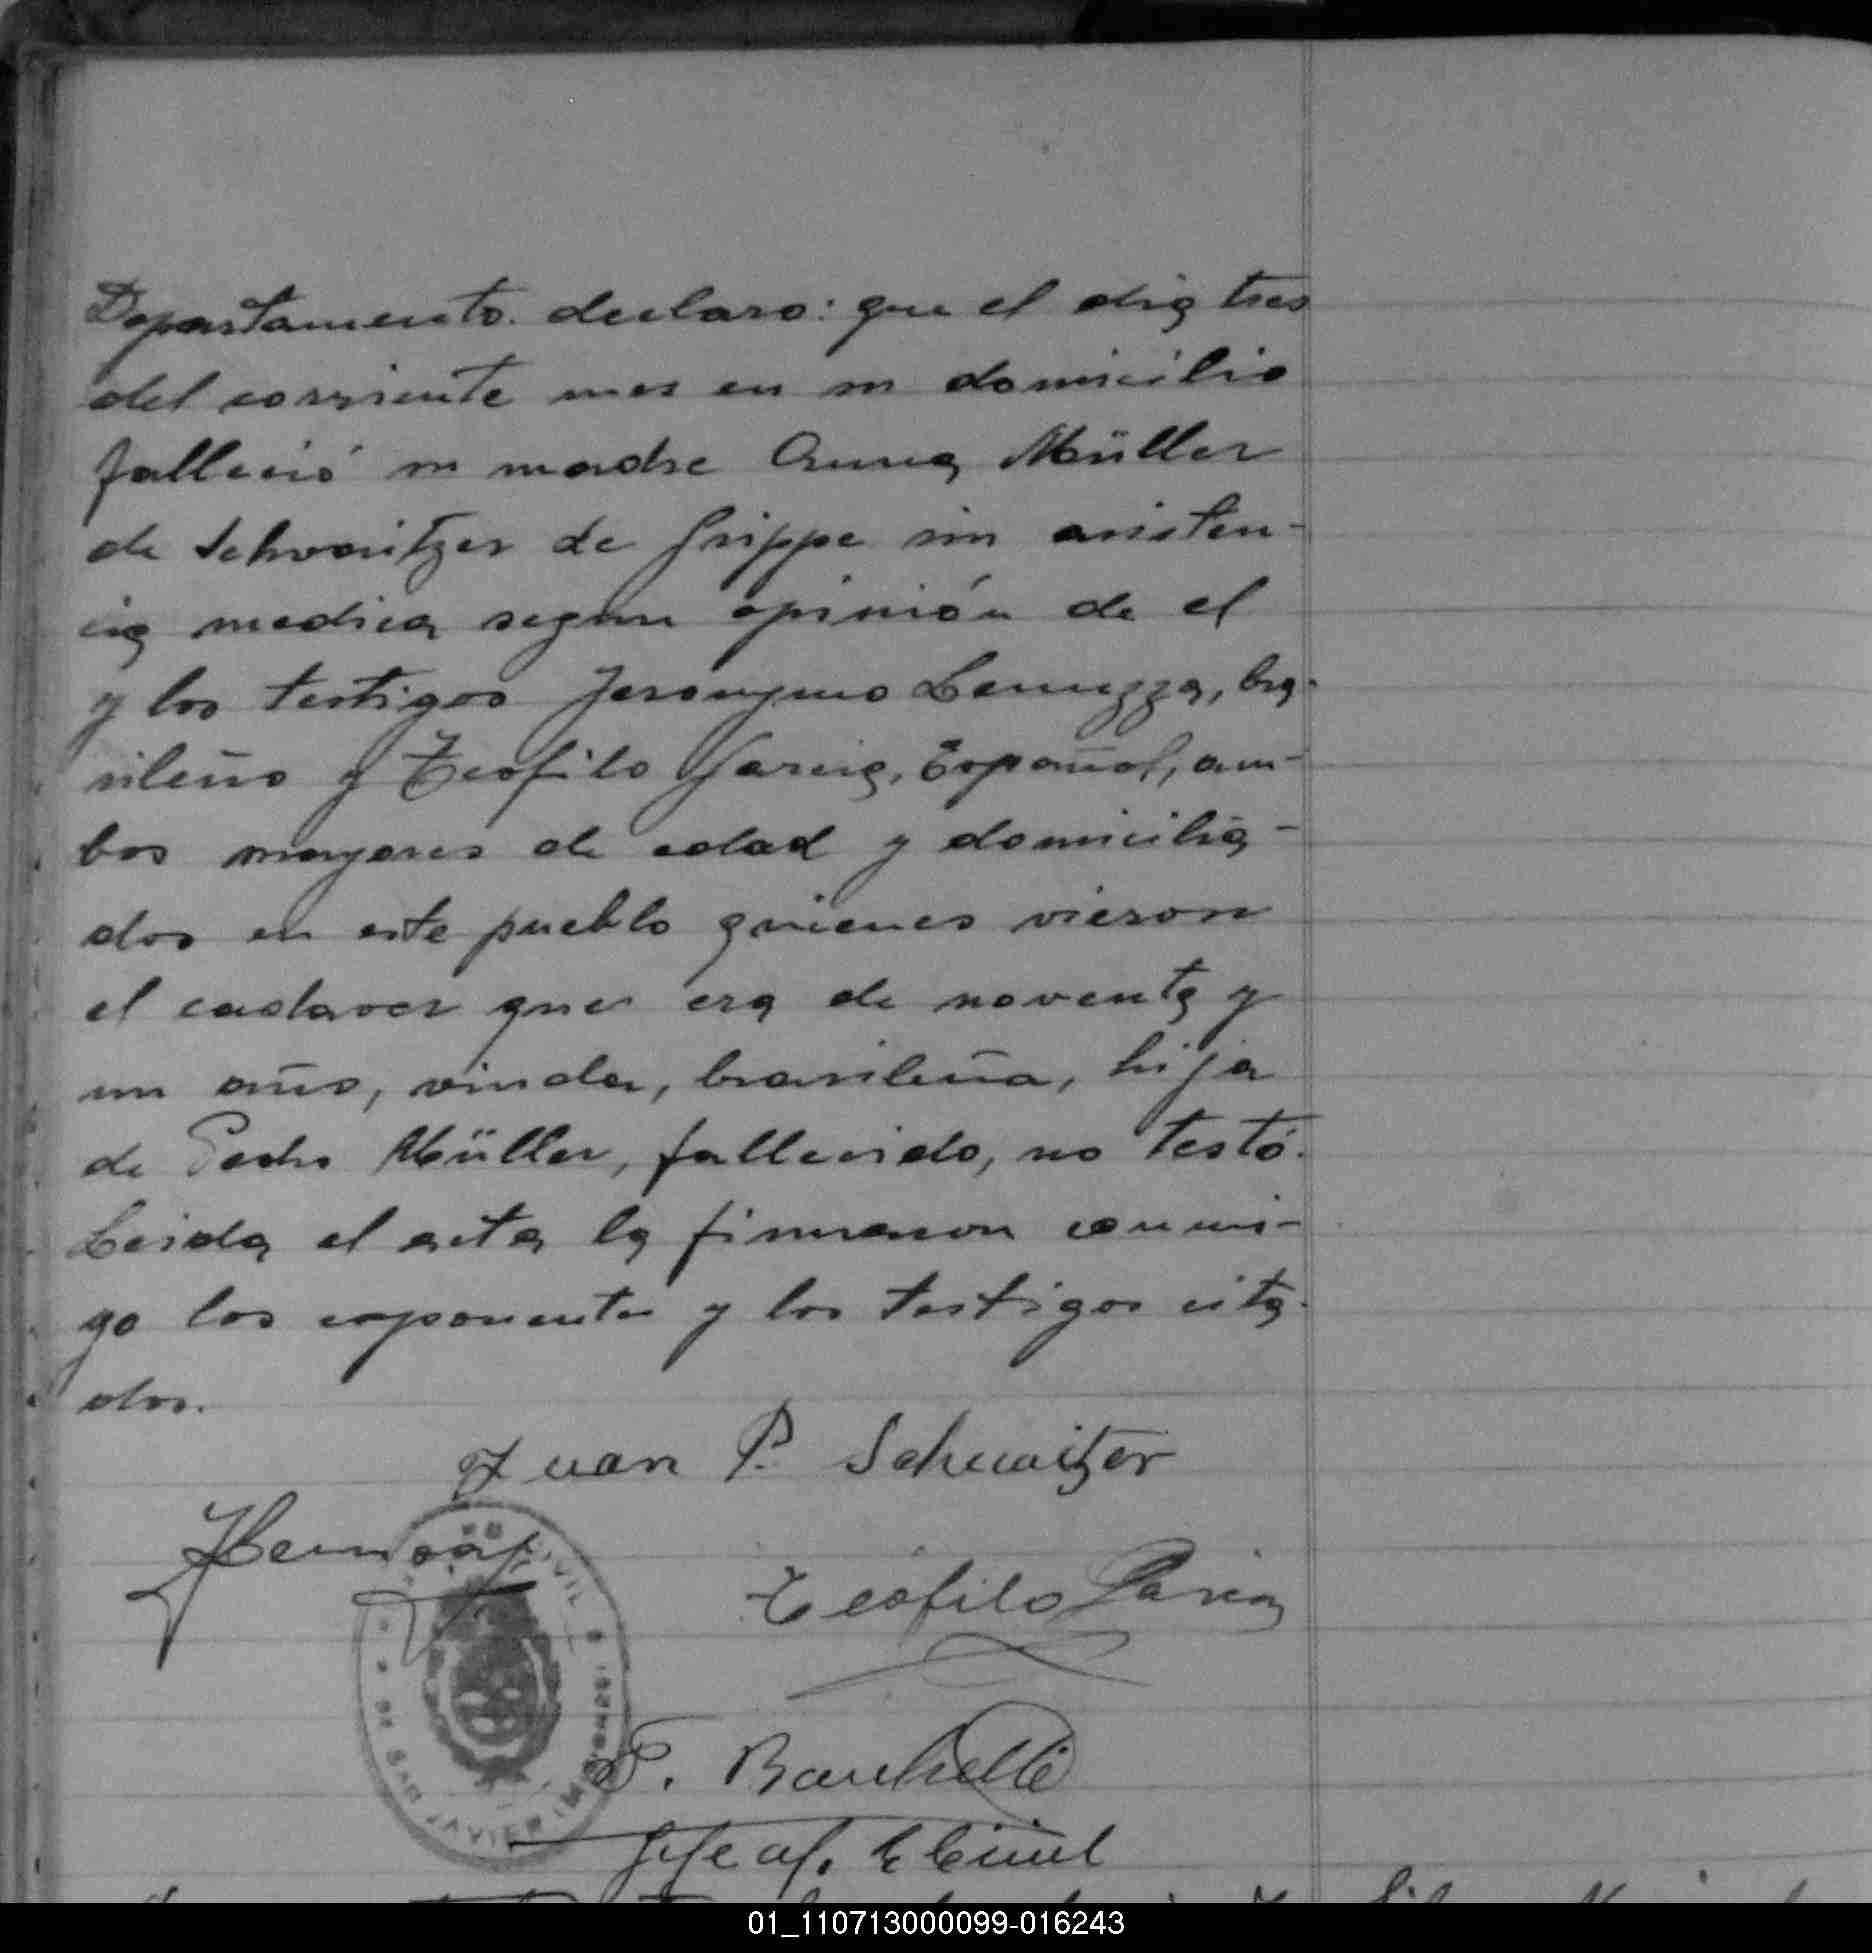 Departamento. declaro: que el dia tres
del corriente mes en su domicilio
falleció su madre Anna Müller
de Schwaitzer de grippe sin asisten-
cia medica segun opinión de el
y los testigos Jeronymo Lemuzza, bra-
sileño y Teofilo Garcia, Español, am-
bos mayores de edad y domicilia-
dos en este pueblo quienes vieron
el cadaver que era de noventa y
un año, viuda, brasileña, hija
de Pedro Müller, fallecido, no testó.
Leida el acta la firmaron conmi-
go los exponente y los testigos cita-
dos.
Juan P. Schwaitzer
Teófilo Garcia
CIVIL
Jefe
01_110713000099-016243